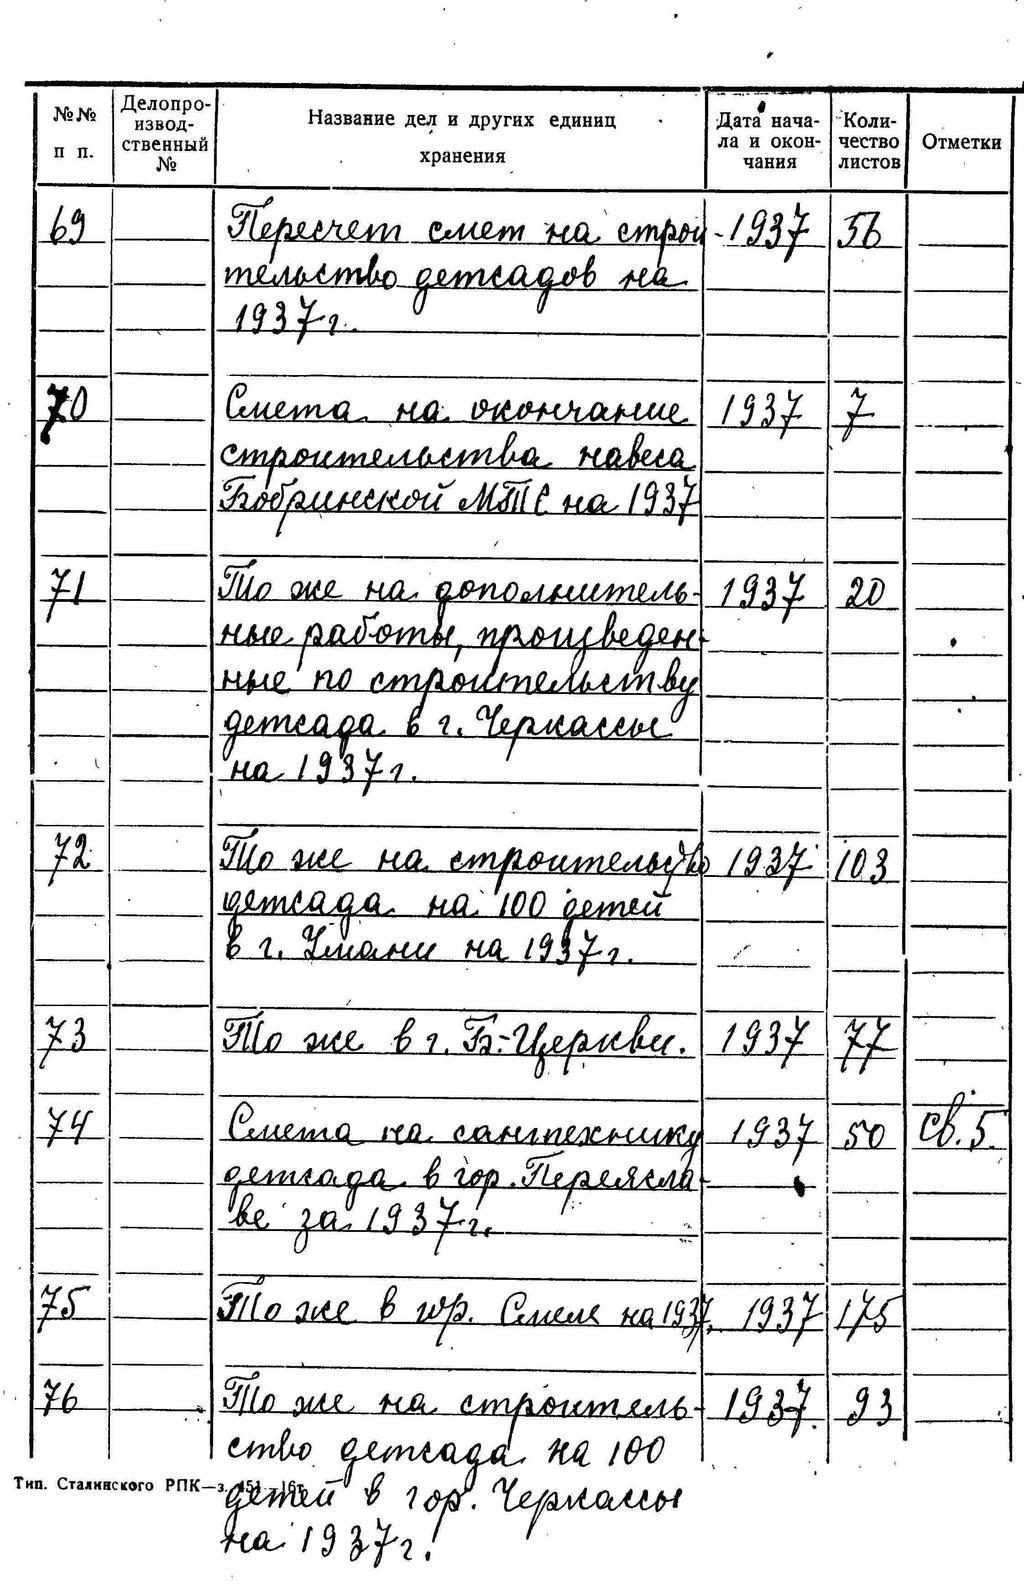 №№ п п.
Делопро-
извод-
ственный
№
Название дел и других единиц
хранения
Дата нача-
ла и окон-
чания
Коли-
чество
листов
Отметки
69 Пересчет смет на строи- 1937 56
тельство детсадов на
1937 г.
70 Смета на окончание 1937 7
строительства навеса
Бобринской МТС на 1937
71 То же на дополнитель- 1937 20
ные работы, произведен-
ные по строительству
детсада в г. Черкассы
на 1937 г.
72 То же на строительство 1937 103
детсада на 100 детей
в г. Умани на 1937 г.
73 То же в г. Б-Церкви. 1937 77
74 Смета на сантехнику 1937 50 св. 5.
детсада в гор. Переясла-
ве за 1937 г.
75 То же в гор. Смеле на 1937. 1937 175
76 То же на строитель- 1937. 93
ство детсада на 100
Тип. Сталинского РПК—з. 451—16т.
детей в гор. Черкассы
на 1937 г.